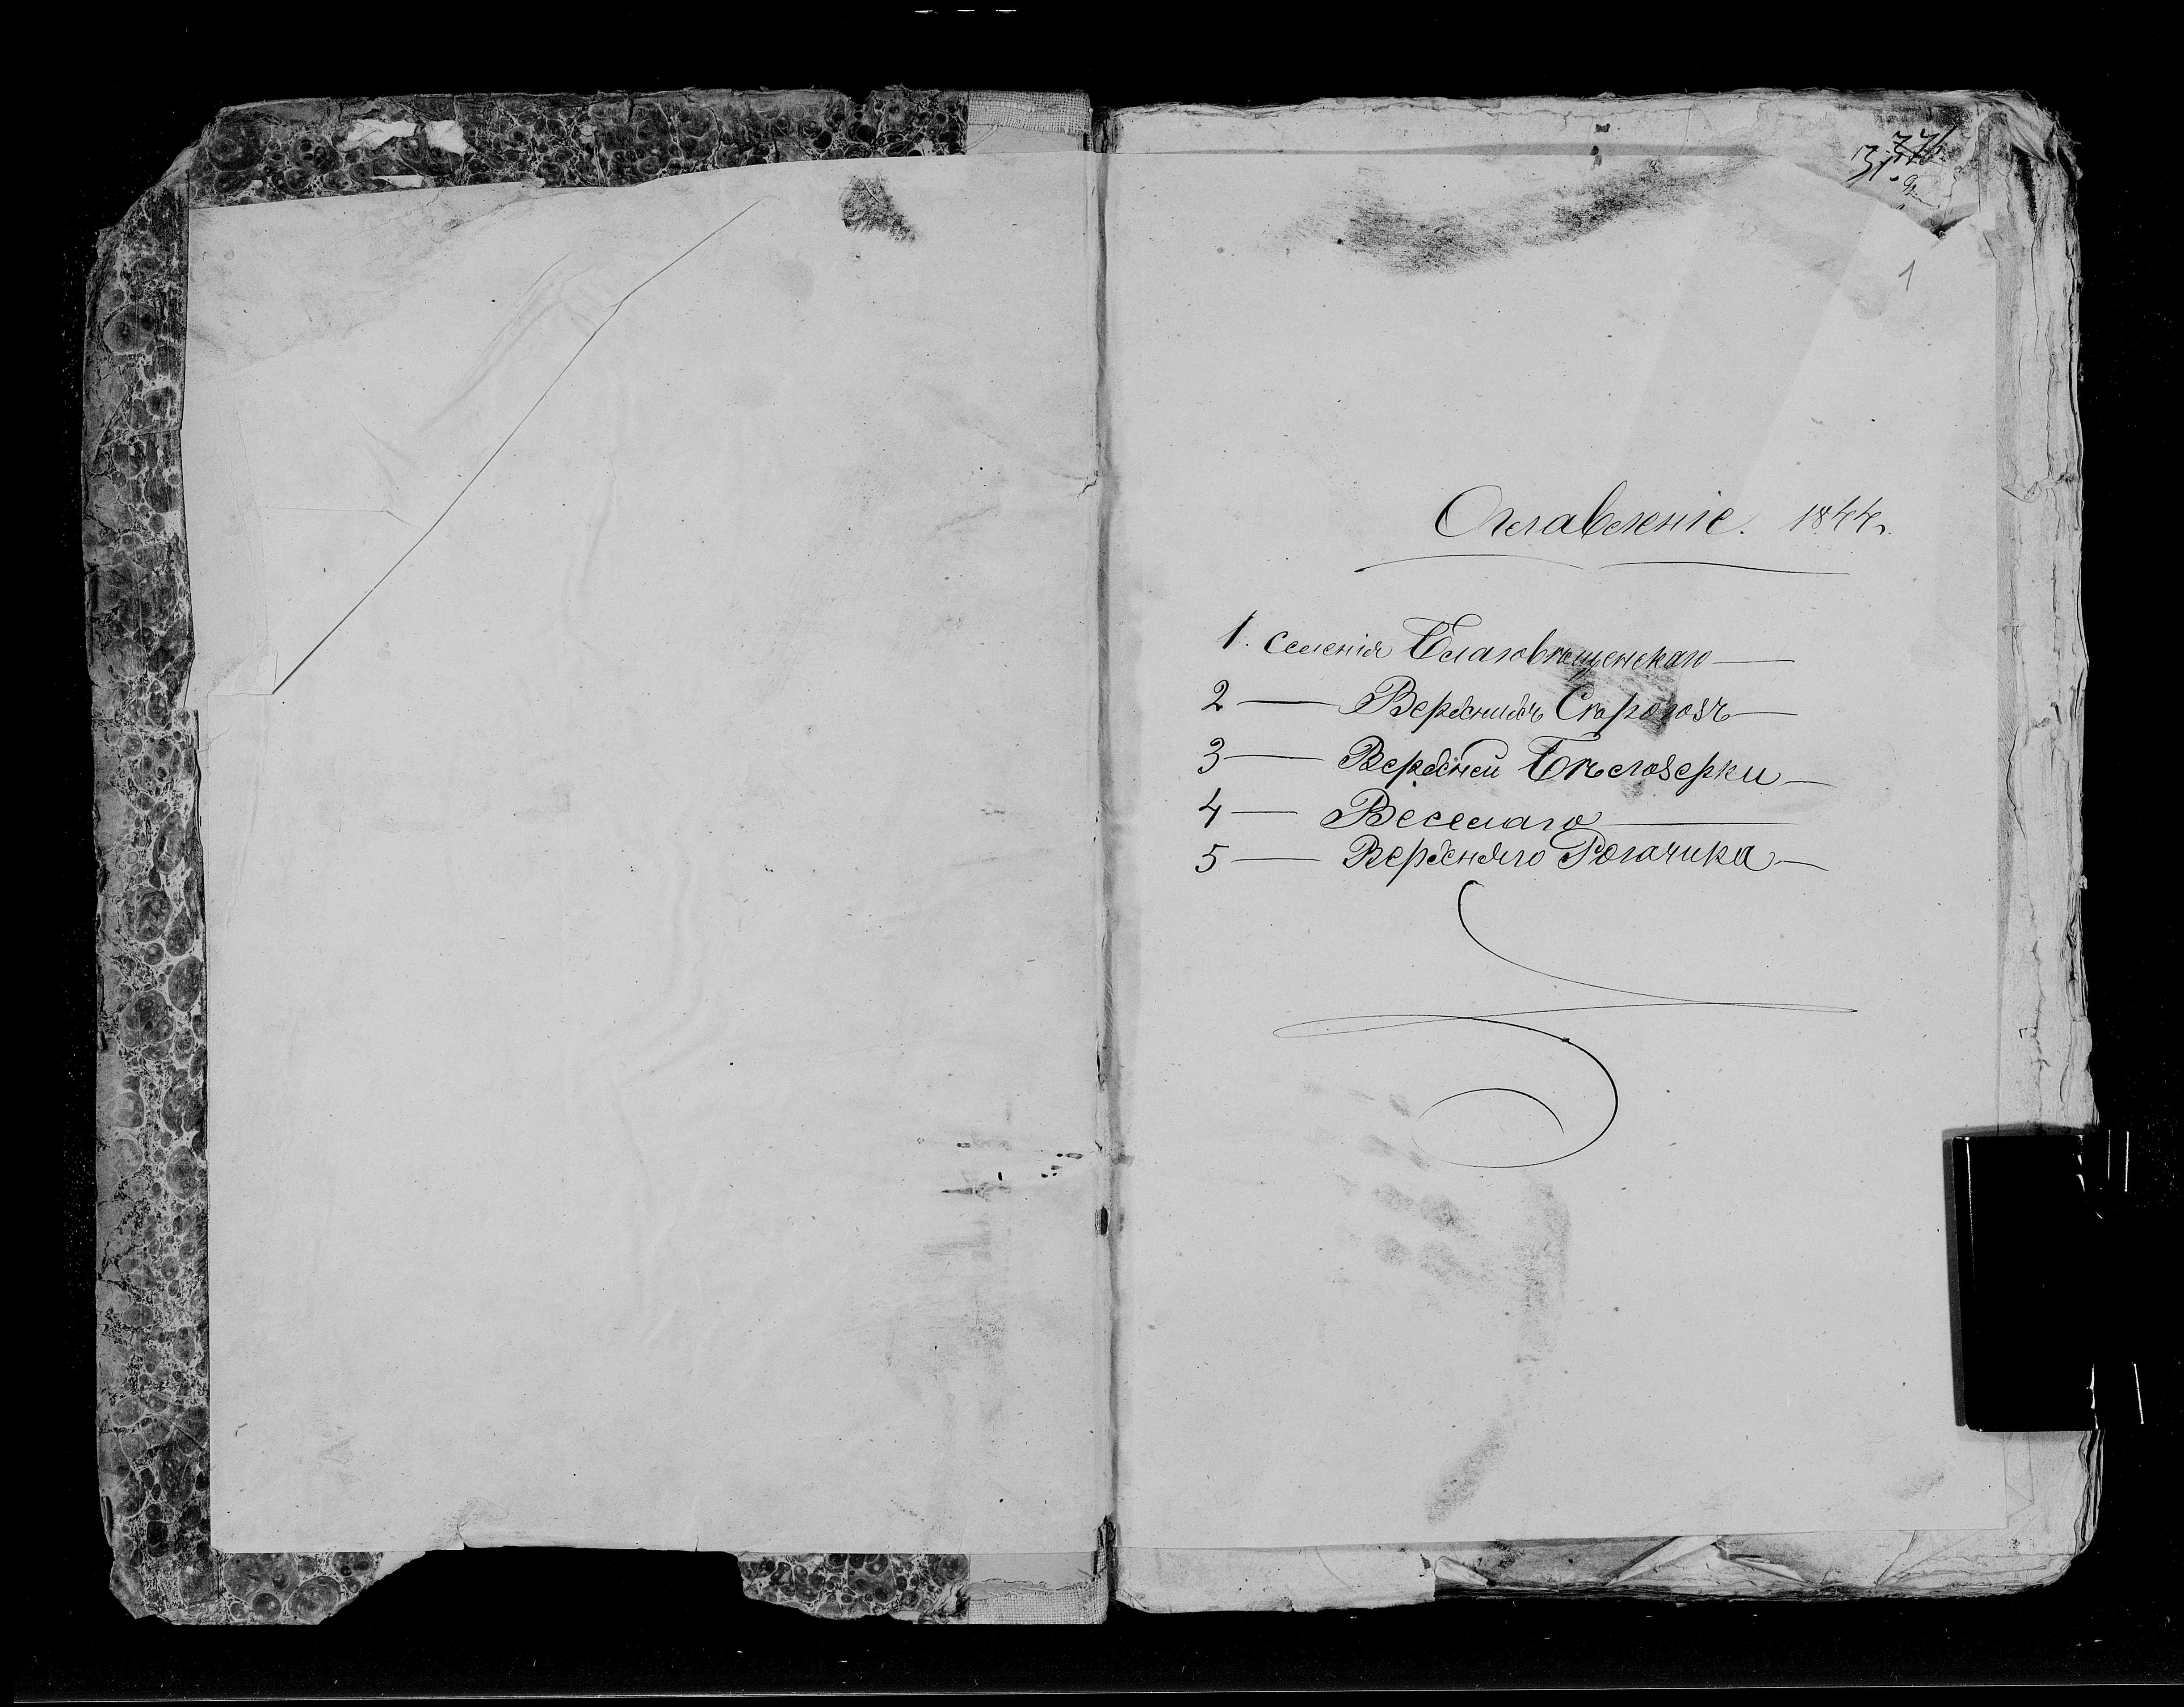 1
Оглавленіе. 1844 г.
1. селенія Благовѣщенскаго —
2 — Верхнихъ Сѣрогозъ —
3 — Верхней Бѣлозерки —
4 — Веселаго —
5 — Верхняго Рогачика —